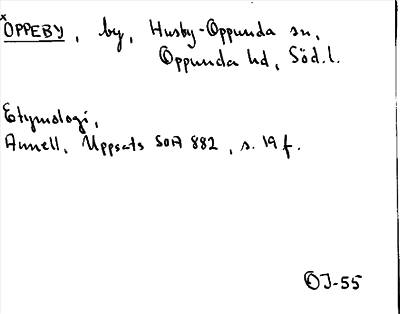 ×OPPEBY, by, Husby-Oppunda sn,
Oppunda hd, Söd.l.
Etymologi,
Annell, Uppsats SOA 882, s. 19 f.
OJ-55